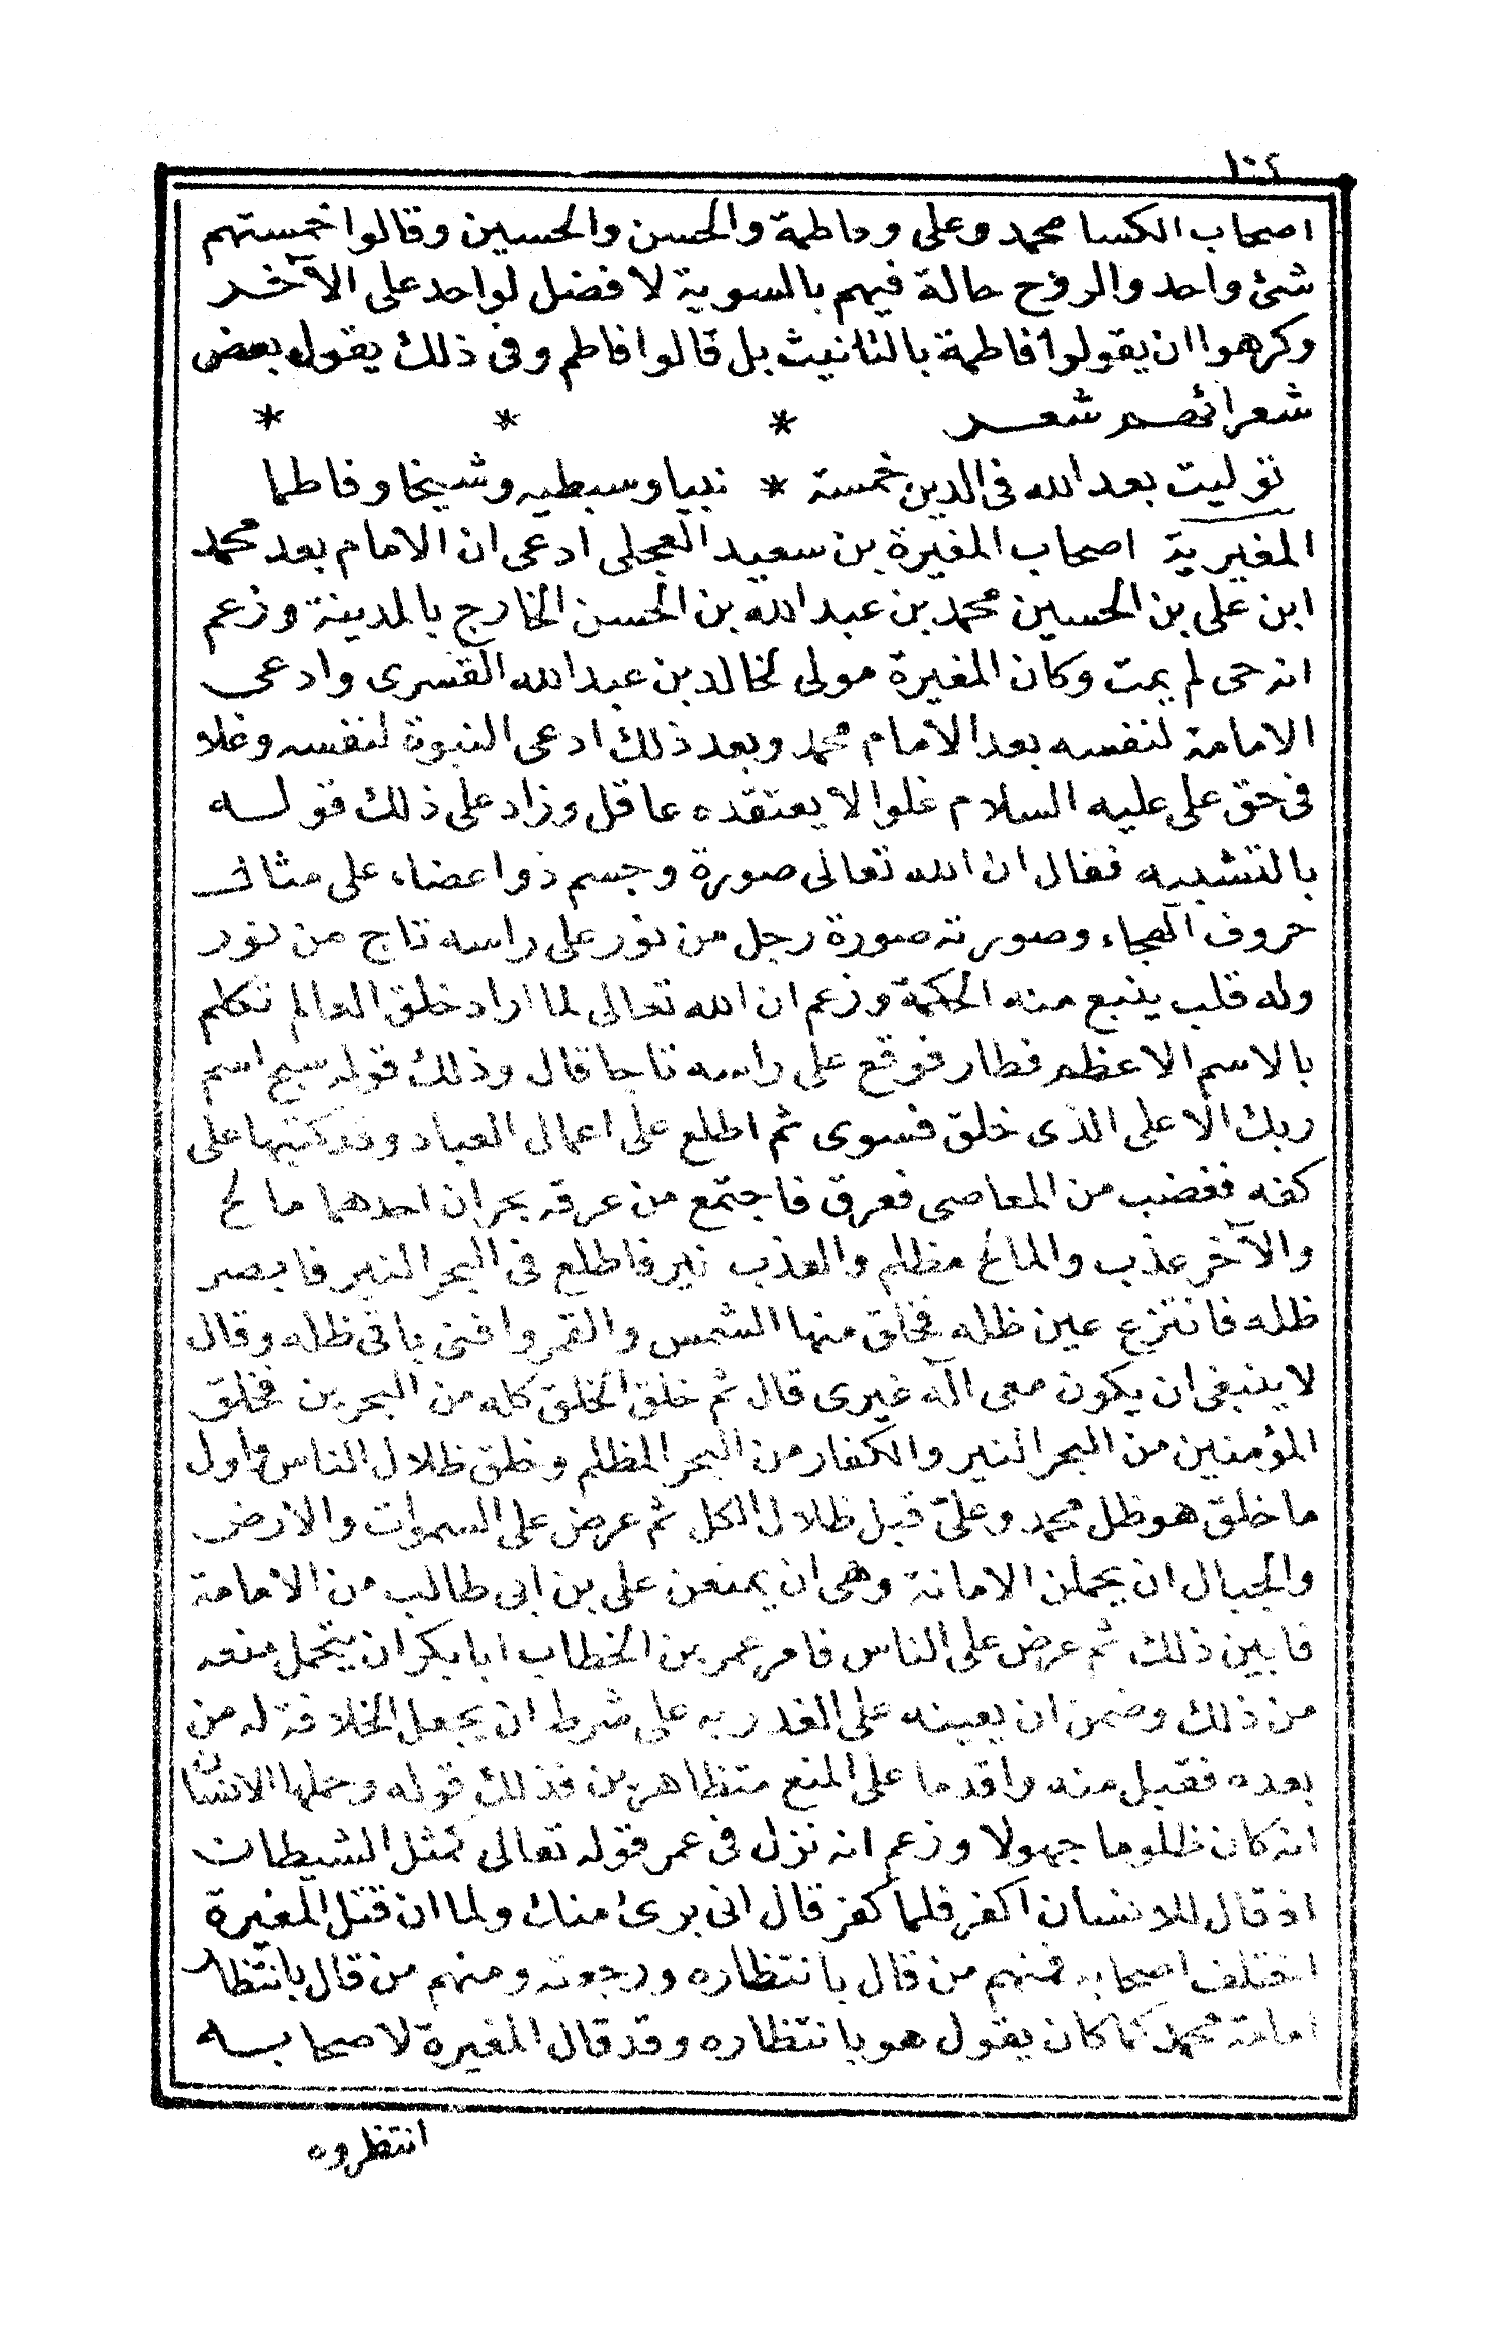 ١٠٤
اصحاب الكسا محمد وعلى وفاطمة والحسن والحسين وقالوا خمستهم
شئ واحد والروح حالة فيهم بالسوية لا فضل لواحد على الآخر
وكرهوا ان يقولوا فاطمة بالتانيث بل قالوا فاطم وفى ذلك يقول بعض
شعرائهم شعر * * *
توليت بعد الله فى الدين خمسة * نبيا وسبطيه وشيخا وفاطما
المغيرية اصحاب المغيرة بن سعيد العجلى ادعى ان الامام بعد محمد
ابن على بن الحسين محمد بن عبد الله بن الحسن الخارج بالمدينة وزعم
انه حى لم يمت وكان المغيرة مولى لخالد بن عبد الله القسرى وادعى
الامامة لنفسه بعد الامام محمد وبعد ذلك ادعى النبوة لنفسه وغلا
فى حق على عليه السلام غلوا لا يعتقده عاقل وزاد على ذلك قوله
بالتشبيه فقال ان الله تعالى صورة وجسم ذو اعضاء على مثال
حروف الهجاء وصورته صورة رجل من نور على راسه تاج من نور
وله قلب ينبع منه الحكمة وزعم ان الله تعالى لما اراد خلق العالم تكلم
بالاسم الاعظم فطار فوقع على راسه تاجا قال وذلك قوله سبح اسم
ربك الاعلى الذى خلق فسوى ثم اطلع على اعمال العباد وقد كتبها على
كفه فغضب من المعاصى فعرق فاجتمع من عرقه بحران احدهما مالح
والآخر عذب والمالح مظلم والعذب نير فاطلع فى البحر النير فابصر
ظله فانتزع عين ظله فخلق منها الشمس والقمر وافنى باقى ظله وقال
لا ينبغى ان يكون معى آله غيرى قال ثم خلق الخلق كله من البحرين فخلق
المؤمنين من البحر النير والكفار من البحر المظلم وخلق ظلال الناس واول
ما خلق هو ظل محمد وعلى قبل ظلال الكل ثم عرض على السموات والارض
والجبال ان يحملن الامانة وهى ان يمنعن على بن ابى طالب من الامامة
فابين ذلك ثم عرض على الناس فامر عمر بن الخطاب ابا بكر ان يتحمل منعه
من ذلك وضمن ان يعينه على الغدر به على شرط ان يجعل الخلافة له من
بعده فقبل منه واقدما على المنع متظاهرين فذلك قوله وحملها الانسان
انه كان ظلوما جهولا وزعم انه نزل فى عمر قوله تعالى كمثل الشيطان
اذ قال للانسان اكفر فلما كفر قال انى برئ منك ولما ان قتل المغيرة
اختلف اصحابه فمنهم من قال بانتظاره ورجعته ومنهم من قال بانتظار
امامة محمد كما كان يقول هو بانتظاره وقد قال المغيرة لاصحابه
انتظروه